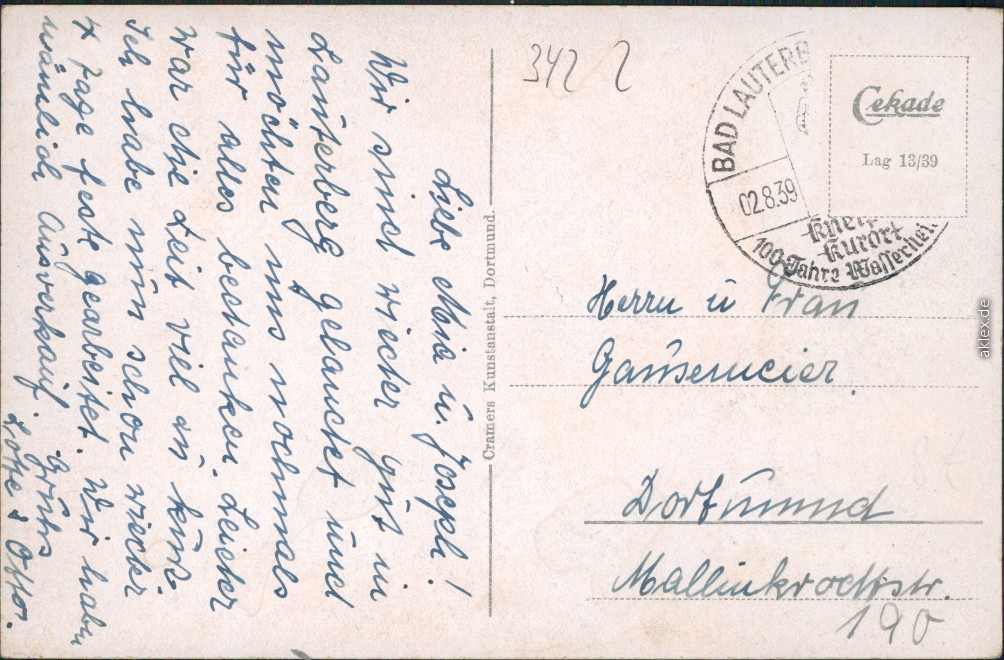 Liebe Mia u. Joseph!
Wir sind wieder gut in
Lauterberg gelandet und
möchten uns nochmals
für alles bedanken. Leider
war die Zeit viel zu kurz.
Ich habe nun schon wieder
4 Tage feste gearbeitet. Wir haben
nämlich Ausverkauf. Grüße
Lotte & Otto.
Cramers Kunstanstalt, Dortmund.
342 2
BAD LAUTERB
02.8.39
Kneipp
Kurort
100 Jahre Wasserheil
Cekade
Lag 13/39
Herrn u Frau
Gausemeier.
Dortmund
Mallinkrodtstr.
190
aklex.de